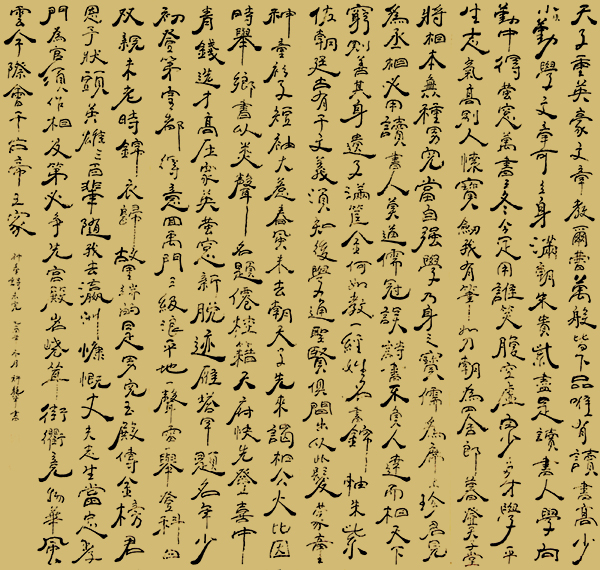 天子重英豪文章教爾曹萬般皆下品唯有讀書高少
小勤學文章可立身滿朝朱貴紫盡是讀書人學向
勤中得螢窓萬書冬今足用誰笑腹空虛少多才學平
生志氣高别人懷寶劍我有筆如刀朝為田舍郎暮登天子堂
將相本無種男兒當自強學乃身之寶儒為席上珍君見
為丞相必用讀書人莫道儒冠誤詩書不負人達而相天下
窮則善其身遺子滿籯金何如教一經姓名書錦軸朱紫
佐朝廷古有千文義須知後學通聖賢俱間出以此發蒙童
神童衫子短袖大惹春風未去朝天子先來謁相公大比因
時舉鄉書以聲名題僊桂籍天府快先登喜中
青錢選才高压眾英螢窓新脫迹雁塔早題名年少
初登第皇都得意回禹門三級浪平地一聲雷舉登科日
双親未老時錦衣歸故里端的是男兒玉殿傳金榜君
恩予狀頭英雄三百輩隨我去瀛洲慷慨丈夫志生當忠孝
門為官須作相及第必爭先宮殿岧嶢聳街衢竞物華風
雲今際會千古帝王家